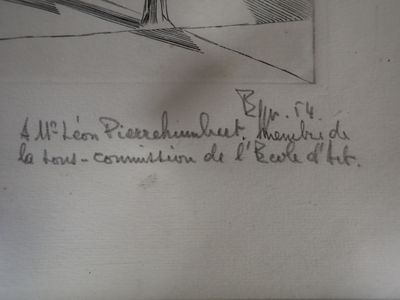 54.
A Mr Léon Pierrehumbert. membre de
la sous-commission de l'Ecole d'Art.